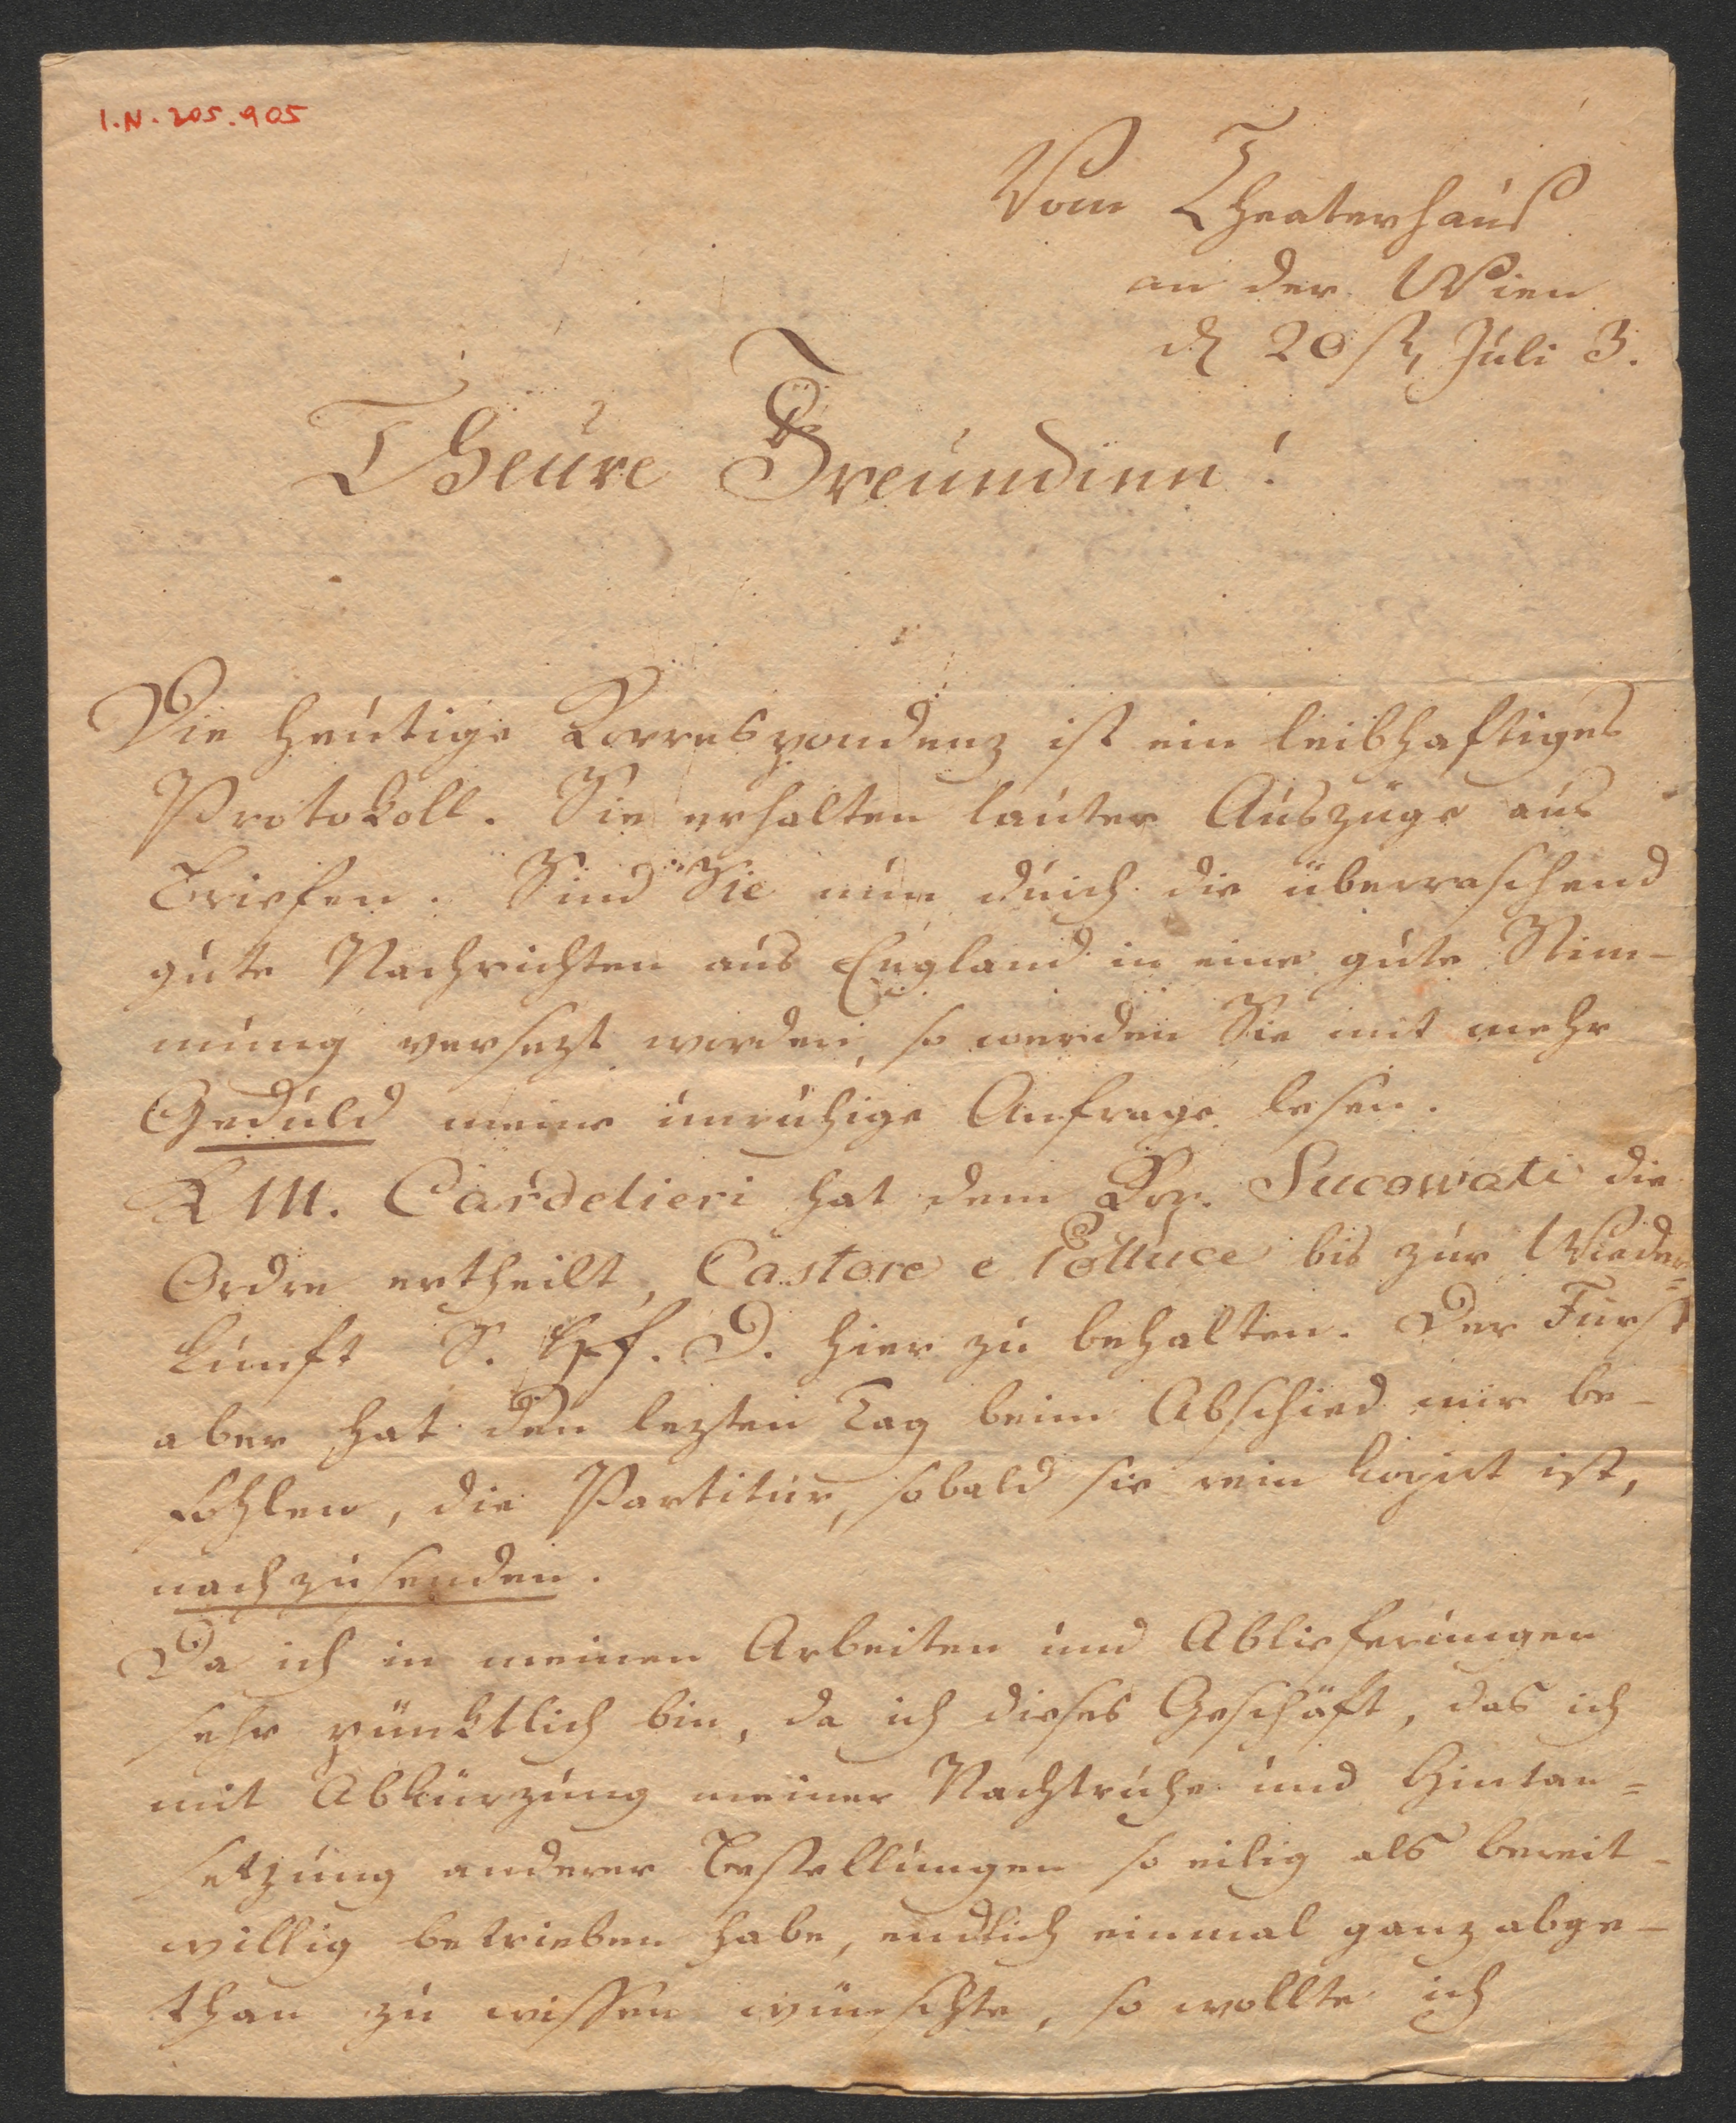 I.N. 205.905
Vom Theaterhaus
an der Wien
d 20st Juli 3.
Theure Freundinn!
Die heutige Korrespondenz ist ein leibhaftiges
Protokoll. Sie erhalten lauter Auszüge aus
Briefen. Sind Sie nun durch die überraschend
gute Nachrichten aus England in eine gute Stim-
mung versezt worden, so werden Sie mit mehr
Geduld meine unruhige Anfrage lesen.
K M. Cardelieri hat dem Kop. Sucowati die
Ordre ertheilt, Castore e Polluce bis zur Wieder-
kunft S. Hf. D. hier zu behalten. Der Fürst
aber hat den lezten Tag beim Abschied mir be-
fohlen, die Partitur, sobald sie rein kopirt ist,
nachzusenden.
Da ich in meinen Arbeiten und Ablieferungen
sehr pünktlich bin, da ich dieses Geschäft, das ich
mit Abkürzung meiner Nachtruhe und Hintan=
setzung anderer Bestellungen so eilig als bereit-
willig betrieben habe, endlich einmal ganz abge-
than zu wissen wünschte, so wollte ich